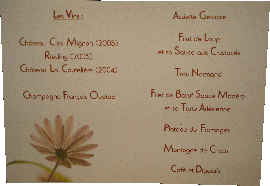 Les Vins :
Château Clos Mignon (2005)
Riesling (2005)
Château La Caussière (2004)
Champagne François Oudard
Assiette Genoise
Filet de Loup
et sa Sauce aux Crustacés
Trou Normand
Filet de Bœuf Sauce Madère
et sa Tarte Ardéenne
Plateau de Fromages
Montagne de Choux
Café et Digestifs